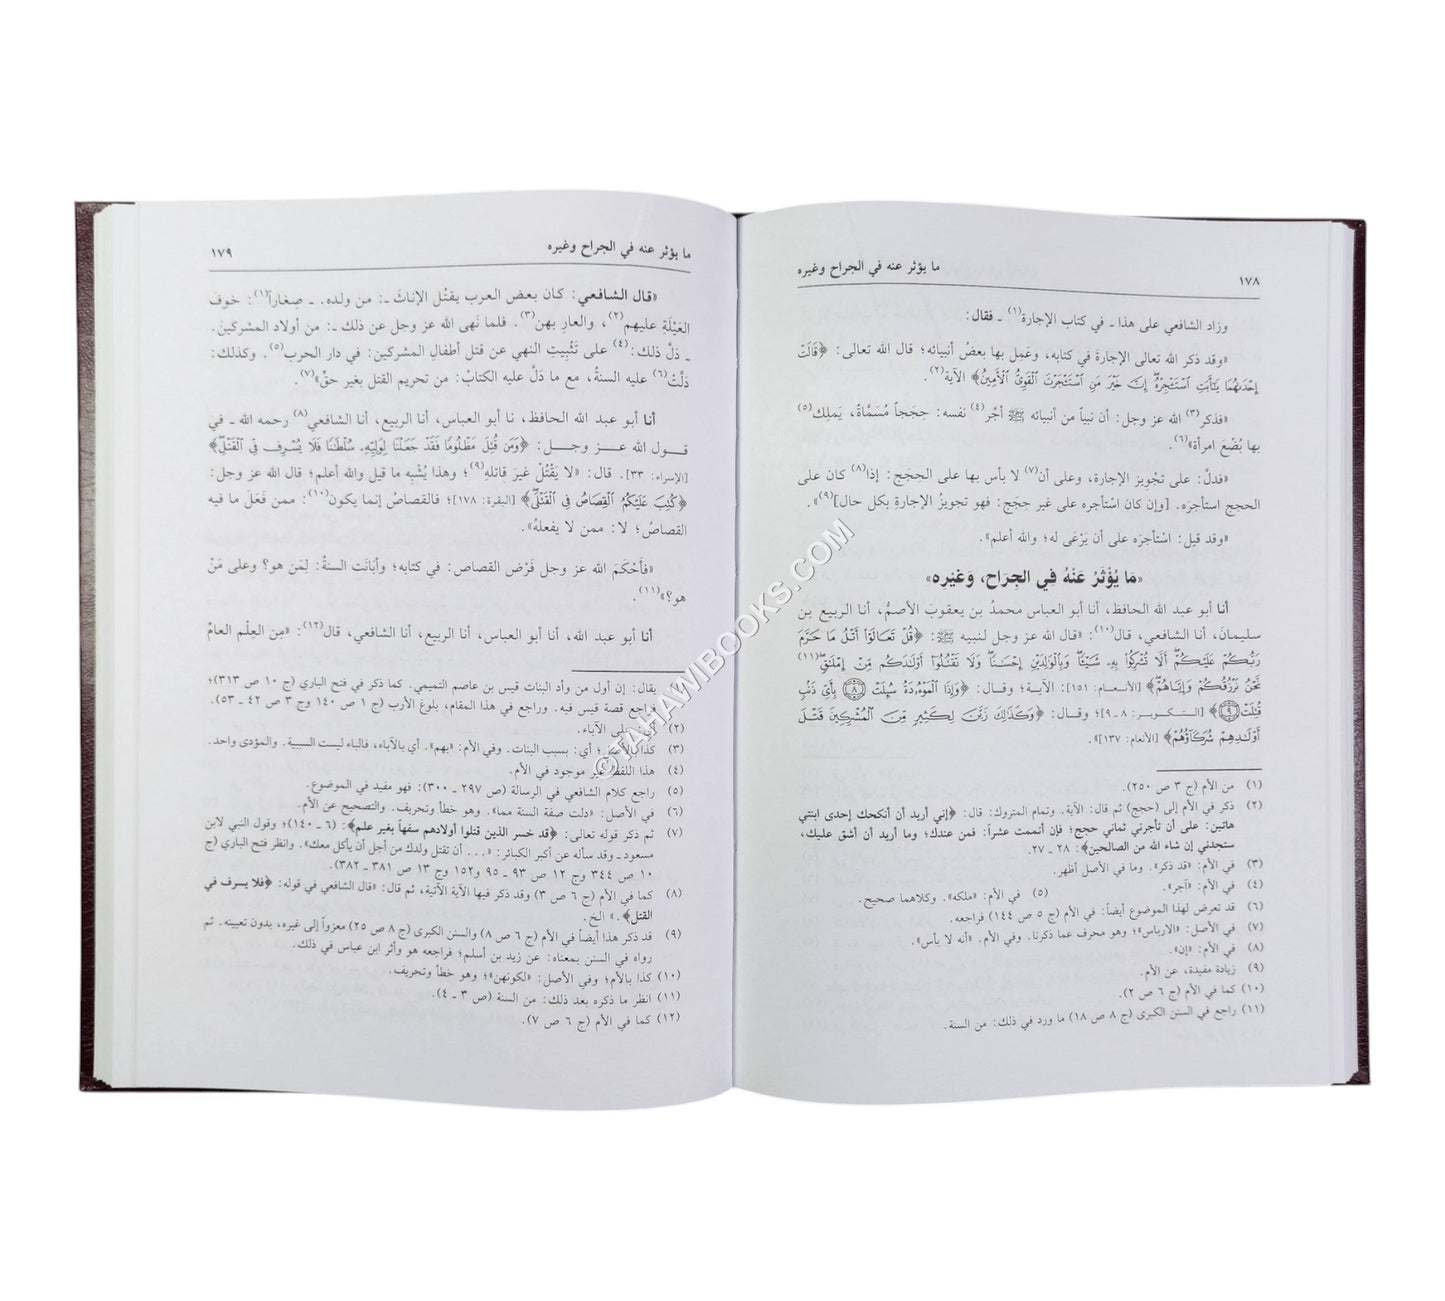 ما يؤثر عنه في الجراح وغيره ١٧٨
وزاد الشافعي على هذا ـ في كتاب الإجارة(١) ـ فقال:
«وقد ذكر الله تعالى الإجارةَ في كتابه، وعَمِل بها بعضُ أنبيائه؛ قال الله تعالى: ﴿قَالَتْ
إِحْدَىٰهُمَا يَٰٓأَبَتِ ٱسْتَـْٔجِرْهُ ۖ إِنَّ خَيْرَ مَنِ ٱسْتَـْٔجَرْتَ ٱلْقَوِىُّ ٱلْأَمِينُ﴾ الآية(٢).
«فذكر(٣) الله عز وجل: أن نبياً من أنبيائه ﷺ أَجَّر(٤) نفسه: حججاً مُسَمَّاةً، يَملِك(٥)
بها بُضْعَ امرأة»(٦).
«فدلَّ: على تَجْويز الإجارة، وعلى أن(٧) لا بأس بها على الحِجَج: إذا(٨) كان على
الحجج استأجرَه. [وإن كان اسْتأجره على غير حِجَج: فهو تجويزُ الإجارةِ بكل حال](٩)».
«وقد قيل: اسْتأجرَه على أن يَرْعَى له؛ والله أعلم».
«مَا يُؤْثَرُ عَنْهُ فِي الجِرَاحِ، وَغَيْرِه»
أنا أبو عبد الله الحافظ، أنا أبو العباس محمدُ بن يعقوبَ الأصمُّ، أنا الربيع بن
سليمانَ، أنا الشافعي، قال(١٠): «قال الله عز وجل لنبيه ﷺ: ﴿قُلْ تَعَالَوْا۟ أَتْلُ مَا حَرَّمَ
رَبُّكُمْ عَلَيْكُمْ ۖ أَلَّا تُشْرِكُوا۟ بِهِۦ شَيْـًٔا ۖ وَبِٱلْوَٰلِدَيْنِ إِحْسَٰنًا ۖ وَلَا تَقْتُلُوٓا۟ أَوْلَٰدَكُم مِّنْ إِمْلَٰقٍ ۖ(١١)
نَّحْنُ نَرْزُقُكُمْ وَإِيَّاهُمْ ۖ﴾ [الأنعام: ١٥١]: الآية؛ وقال: ﴿وَإِذَا ٱلْمَوْءُۥدَةُ سُئِلَتْ ٨ بِأَىِّ ذَنۢبٍ
قُتِلَتْ ٩﴾ [التكوير: ٨ ـ ٩]؛ وقال: ﴿وَكَذَٰلِكَ زَيَّنَ لِكَثِيرٍ مِّنَ ٱلْمُشْرِكِينَ قَتْلَ
أَوْلَٰدِهِمْ شُرَكَآؤُهُمْ﴾ [الأنعام: ١٣٧]».
(١) من الأم (ج ٣ ص ٢٥٠).
(٢) ذكر في الأم إلى (حجج) ثم قال: الآية. وتمام المتروك: قال: ﴿إني أريد أن أنكحك إحدى ابنتي
هاتين: على أن تأجرني ثماني حجج؛ فإن أتممت عشراً: فمن عندك؛ وما أريد أن أشق عليك،
ستجدني إن شاء الله من الصالحين﴾: ٢٨ ـ ٢٧.
(٣) في الأم: «قد ذكر». وما في الأصل أظهر.
(٤) في الأم: «آجر». (٥) في الأم: «ملكه». وكلاهما صحيح.
(٦) قد تعرض لهذا الموضوع أيضاً: في الأم (ج ٥ ص ١٤٤) فراجعه.
(٧) في الأصل: «الارباس»؛ وهو محرف عما ذكرنا. وفي الأم. «أنه لا بأس».
(٨) في الأم: «إن».
(٩) زيادة مفيدة، عن الأم.
(١٠) كما في الأم (ج ٦ ص ٢).
(١١) راجع في السنن الكبرى (ج ٨ ص ١٨) ما ورد في ذلك: من السنة.
ما يؤثر عنه في الجراح وغيره ١٧٩
«قال الشافعي: كان بعض العرب يقتُل الإناثَ ـ: من ولده. ـ صِغاراً(١): خوفَ
العَيْلَةِ عليهم(٢)، والعارِ بهن(٣). فلما نَهى الله عز وجل عن ذلك ـ: من أولاد المشركينَ.
ـ دَلَّ ذلك:(٤) على تَثْبِيتِ النهيِ عن قتل أطفالِ المشركين: في دار الحرب(٥). وكذلك:
دَلَّتْ(٦) عليه السنةُ، مع ما دَلَّ عليه الكتابُ: من تحريم القتل بغير حقٍّ»(٧).
أنا أبو عبد الله الحافظ، نا أبو العباس، أنا الربيع، أنا الشافعي(٨) رحمه الله ـ في
قول الله عز وجل: ﴿وَمَن قُتِلَ مَظْلُومًا فَقَدْ جَعَلْنَا لِوَلِيِّهِۦ سُلْطَٰنًا فَلَا يُسْرِف فِّى ٱلْقَتْلِ ۖ﴾
[الإسراء: ٣٣]. قال: «لا يَقْتُلْ غيرَ قاتلهِ(٩)؛ وهذا يُشْبِه ما قيل والله أعلم؛ قال الله عز وجل:
﴿كُتِبَ عَلَيْكُمُ ٱلْقِصَاصُ فِى ٱلْقَتْلَى ۖ﴾ [البقرة: ١٧٨]؛ فالقصاصُ إنما يكون(١٠): ممن فَعَلَ ما فيه
القصاصُ؛ لا: ممن لا يفعلهُ».
«فأَحْكَمَ الله عز وجل فَرْضَ القصاص: في كتابه؛ وأبَانَت السنةُ: لِمَن هو؟ وعلى مَنْ
هو؟»(١١).
أنا أبو عبد الله، أنا أبو العباس، أنا الربيع، أنا الشافعي، قال(١٢): «مِن العِلْم العامِّ
يقال: إن أول من وأد البنات قيس بن عاصم التميمي. كما ذكر في فتح الباري (ج ١٠ ص ٣١٣)؛
فراجع قصة قيس فيه. وراجع في هذا المقام، بلوغ الأرب (ج ١ ص ١٤٠ وج ٣ ص ٤٢ ـ ٥٣).
(٢) على الآباء.
(٣) كذا بالأصل؛ أي: بسبب البنات. وفي الأم: «بهم». أي بالآباء، فالباء ليست السببية. والمؤدى واحد.
(٤) هذا اللفظ غير موجود في الأم.
(٥) راجع كلام الشافعي في الرسالة (ص ٢٩٧ ـ ٣٠٠): فهو مفيد في الموضوع.
(٦) في الأصل: «دلت صفة السنة مما». وهو خطأ وتحريف. والتصحيح عن الأم.
(٧) ثم ذكر قوله تعالى: ﴿قد خسر الذين قتلوا أولادهم سفهاً بغير علم﴾: (٦ ـ ١٤٠)؛ وقول النبي لابن
مسعود ـ وقد سأله عن أكبر الكبائر: «... أن تقتل ولدك من أجل أن يأكل معك». وانظر فتح الباري (ج
١٠ ص ٣٤٤ وج ١٢ ص ٩٣ ـ ٩٥ و١٥٢ وج ١٣ ص ٣٨١ ـ ٣٨٢).
(٨) كما في الأم (ج ٦ ص ٣) وقد ذكر فيها الآية الآتية، ثم قال: «قال الشافعي في قوله: ﴿فلا يسرف في
القتل﴾.» الخ.
(٩) قد ذكر هذا أيضاً في الأم (ج ٦ ص ٨) والسنن الكبرى (ج ٨ ص ٢٥) معزواً إلى غيره، بدون تعيينه. ثم
رواه في السنن بمعناه: عن زيد بن أسلم؛ فراجعه هو وأثر ابن عباس في ذلك.
(١٠) كذا بالأم؛ وفي الأصل: «لكونهن»؛ وهو خطأ وتحريف.
(١١) انظر ما ذكره بعد ذلك: من السنة (ص ٣ ـ ٤).
(١٢) كما في الأم (ج ٦ ص ٧).
©TAHAWIBOOKS.COM